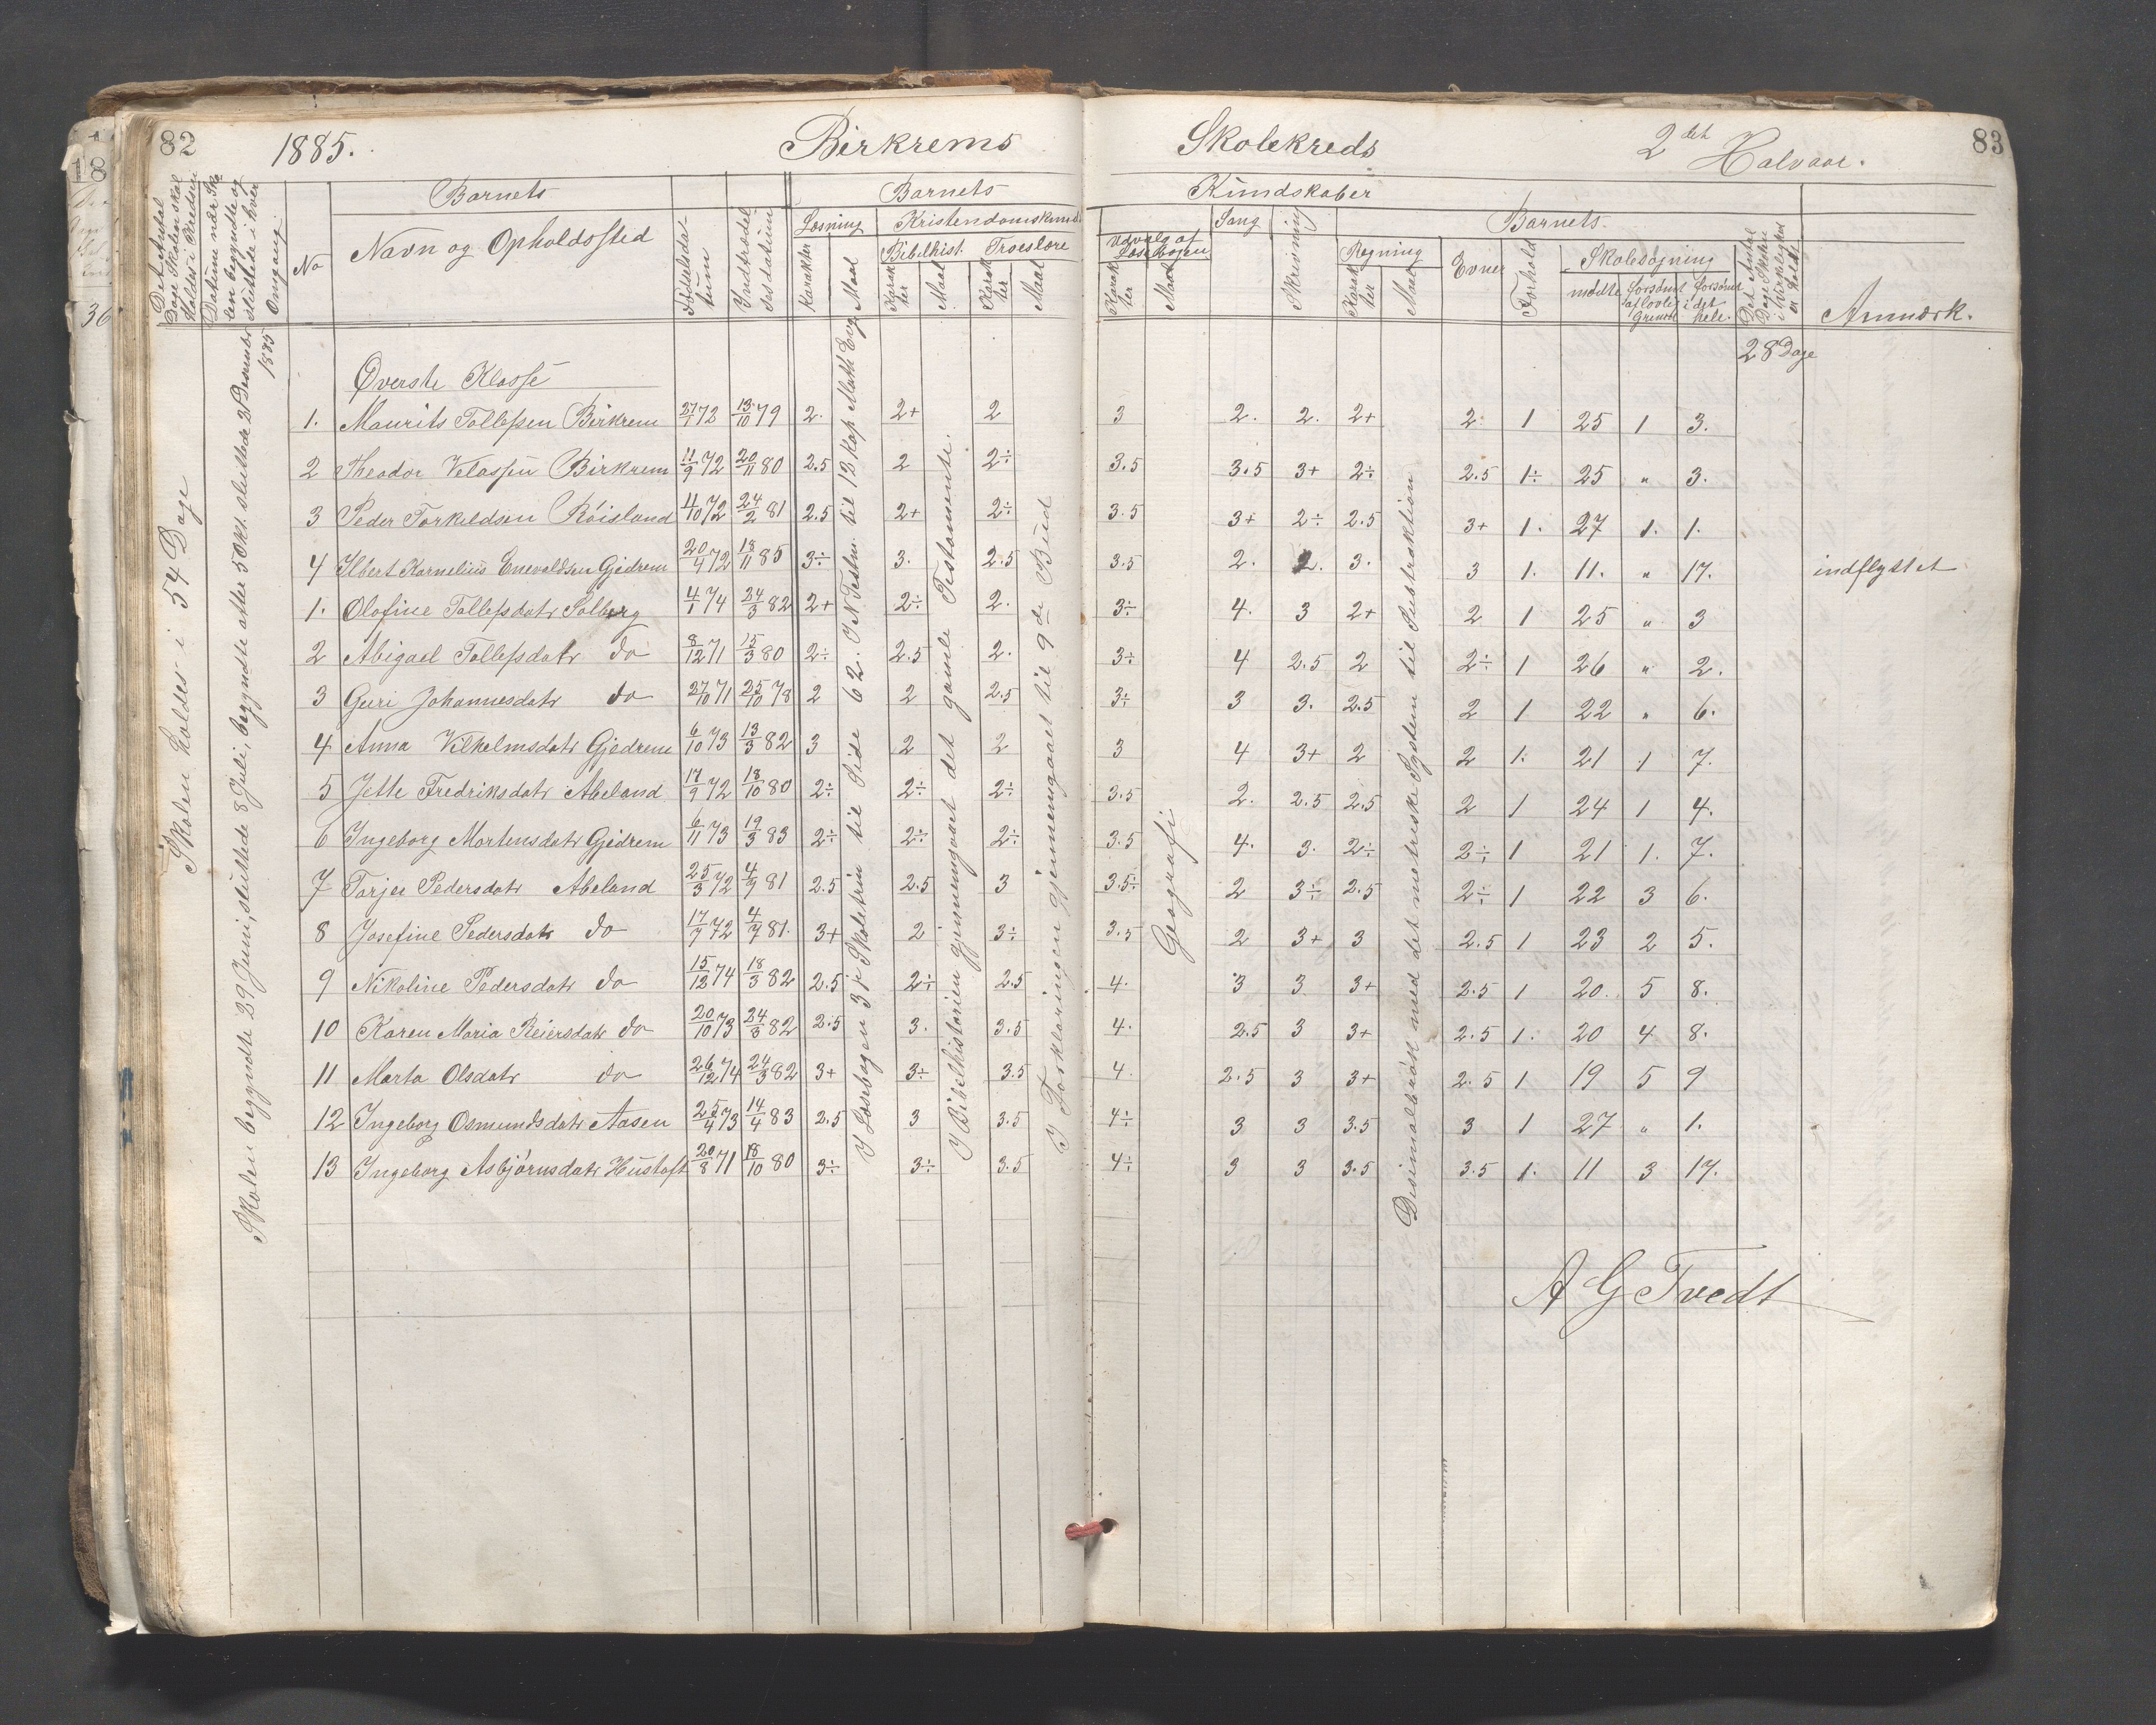 82
1885.
Birkrems
Skolekreds
2det Halvaar.
83
Det Antal Dage Skolen skal holdes i Kredsen
Datum naar Skolen begyndte og sluttede i hver Omgang
No
Barnets
Navn og Opholdssted
Fødselsdatum
Indtrædelsesdatum
Barnets
Kundskaber
Læsning
Karakter
Maal
Kristendomskund.
Bibelhist.
Karakter
Maal
Troeslære
Karakter
Maal
Udvalg af Læsebogen
Karakter
Maal
Sang
Skrivning
Regning
Karakter
Maal
Barnets
Evner
Forhold
Skolesøgning
mødte
forsømt af lovlig Grund
forsømt i det hele.
Det Antal Dage Skolen i Virkelighed er holdt
Anmærk.
28 Dage
Skolen holdes i 54 Dage
Skolen begyndte 29 Juni, sluttede 8 Juli, begyndte atter 5 Okt. sluttede 2 Desember 1885
Øverste Klasse
1. Maurits Tollefsen Birkrem 27/1 72 13/10 79 2. 2+ 2 3 2. 2. 2+ 2 1 25 1 3.
2 Theodor Velassen Birkrem 11/9 72 20/11 80 2.5 2 2÷ 3.5 3.5 3+ 2÷ 2.5 1÷ 25 " 3.
3 Peder Torkeldsen Röisland 4/10 72 24/2 81 2.5 2+ 2÷ 3.5 3+ 2÷ 2.5 3+ 1. 27 1. 1.
4 Ilbert Kornelius Enevoldsen Gjedrem 20/9 72 18/11 85 3÷ 3. 2.5 3.5 2. 2. 3. 3 1. 11. " 17. indflyttet
1. Olafine Tollefsdatr Solberg 4/1 74 24/3 82 2+ 2÷ 2. 3÷ 4. 3 2+ 2 1 25 " 3
2 Abigael Tollefsdatr do 8/12 71 15/3 80 2÷ 2.5 2. 3÷ 4 2.5 2 2÷ 1 26 " 2.
3 Guri Johannesdatr do 27/10 71 25/10 78 2 2 2.5 3÷ 3 3. 2.5 2 1 22 " 6.
4 Anna Vilhelmsdatr Gjedrem 6/10 73 13/3 82 3 2 2 3 4 3+ 2 2 1. 21 1 7.
5 Jette Fredriksdatr Abeland 17/9 72 18/10 80 2÷ 2÷ 2÷ 3.5 2. 2.5 2.5 2 1 24 1 4.
6 Ingeborg Mortensdatr Gjedrem 6/11 73 19/3 83 2÷ 2÷ 2÷ 3.5 4. 3. 2÷ 2÷ 1 21 1. 7.
7 Torjer Pedersdatr Abeland 25/3 72 4/9 81 2.5 2.5 3 3.5÷ 2 3÷ 2.5 2÷ 1 22 3 6.
8 Josefine Pedersdatr do 17/7 72 4/7 81. 3+ 2 3÷ 3.5 2 3+ 3 2.5 1 23 2 5.
9 Nikoline Pedersdatr do 15/12 74 18/3 82 2.5 2÷ 2.5 4. 3 3 3+ 2.5 1 20. 5 8.
10 Karen Maria Reiersdatr do 20/10 73 24/3 82 2.5 3. 3.5 4. 2.5 3 3+ 2.5 1. 20 4 8.
11 Marta Olsdatr do 26/12 74 24/3 82 3+ 3÷ 3.5 4. 2.5 3 3+ 2.5 1 19 5 9
12 Ingeborg Osmundsdatr Aasen 25/4 73 14/4 83 2.5 3 3.5 4÷ 3 3 3.5 3 1 27 " 1.
13 Ingeborg Asbjørnsdatr Hustoft 20/8 71 18/10 80 3÷ 3÷ 3.5 4÷ 3 3 3.5 3.5 1. 11 3 17.
I Læsebogen 3die Skoletrin til Side 62. I N Testm. til 12 Kap Math Evg
I Bibelhistorien gjennemgaaet det gamle Testamente.
I Forklaringen gjennemgaaet til 9de Bud
Geografi
Desimalbrök med det metriske System til Substraktion
A G Tvedt
18
36